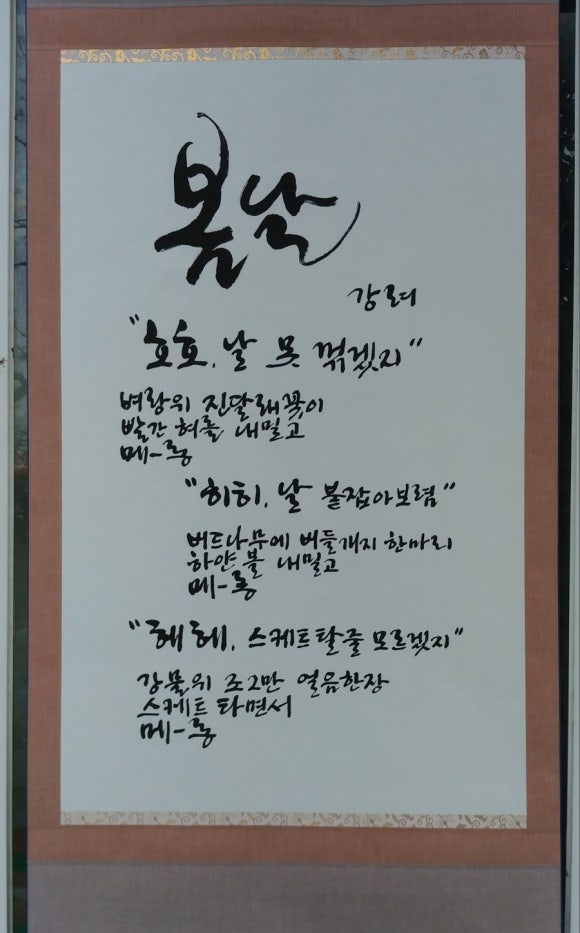 봄날
강려
"호호, 날 못 꺾겠지"
벼랑위 진달래꽃이
빨간 혀를 내밀고
메-롱
"히히, 날 붙잡아보렴"
버드나무에 버들개지 한마리
하얀 불 내밀고
메-롱
"헤헤, 스케트탈줄 모르겠지"
강물위 조그만 얼음한장
스케트 타면서
메-롱